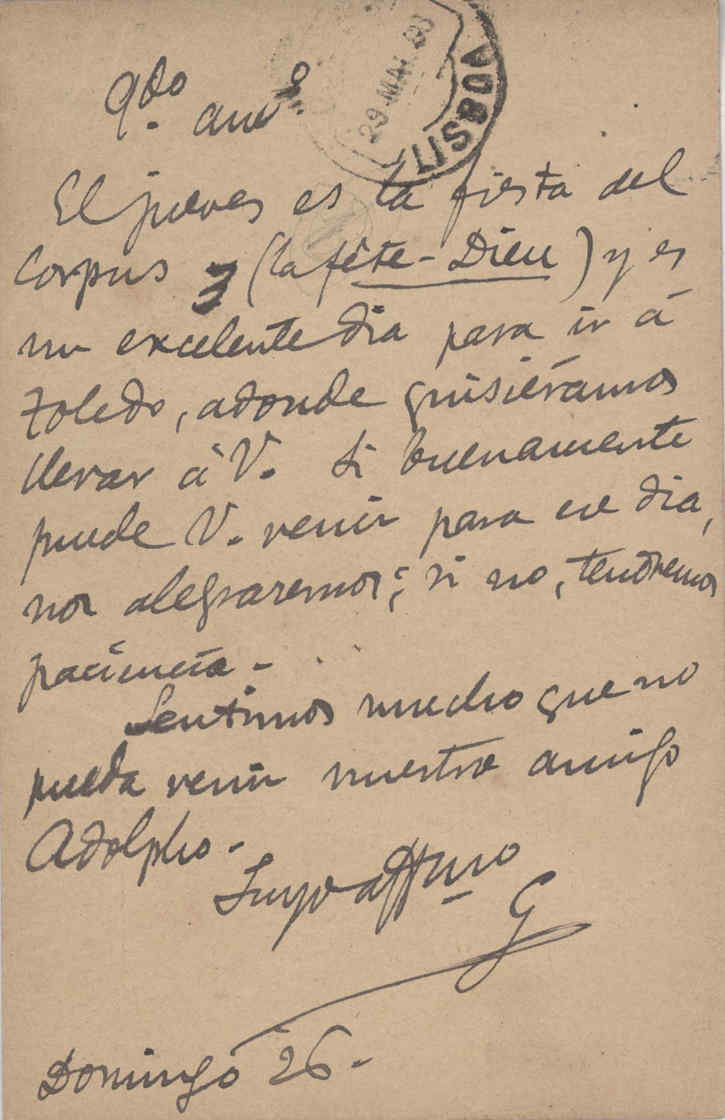 LISBOA
29 MAI
Qdo. amº.
El jueves es la fiesta del
Corpus (la fête-Dieu) y es
un excelente dia para ir á
Toledo, adonde quisiéramos
llevar á V. Si buenamente
puede V. venir para ese dia,
nos alegraremos; si no, tendremos
paciencia.-
Sentimos mucho que no
pueda venir nuestro amigo
Adolpho.-
Suyo affmo
G
Domingo 26.-